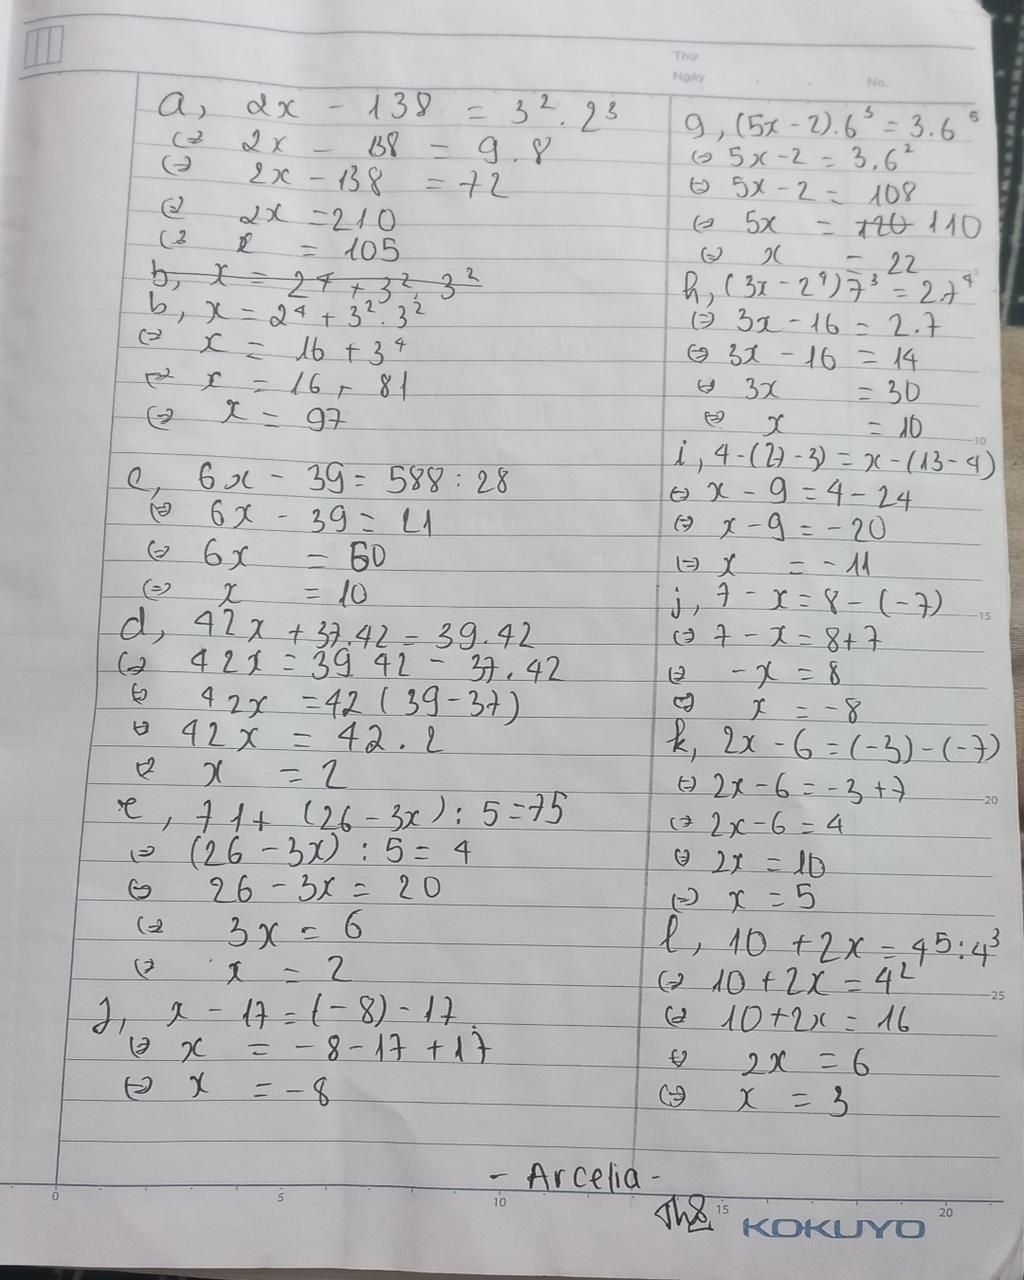 Thứ
Ngày
No.
a, 2x - 138 = 3². 2³
(=) 2x - 138 = 9.8
(=) 2x - 138 = 72
(=) 2x = 210
(=) x = 105
b, x = 2⁴ + 3². 3²
b, x = 2⁴ + 3². 3²
(=) x = 16 + 3⁴
(=) x = 16 + 81
(=) x = 97
c, 6x - 39 = 588 : 28
(=) 6x - 39 = 21
(=) 6x = 60
(=) x = 10
d, 42x + 37.42 = 39.42
(=) 42x = 39.42 - 37.42
(=) 42x = 42 (39-37)
(=) 42x = 42.2
(=) x = 2
e, 71 + (26 - 3x) : 5 = 75
(=) (26 - 3x) : 5 = 4
(=) 26 - 3x = 20
(=) 3x = 6
(=) x = 2
f, x - 17 = (-8) - 17
(=) x = -8 - 17 + 17
(=) x = -8
g, (5x - 2).6³ = 3.6⁵
(=) 5x - 2 = 3.6²
(=) 5x - 2 = 108
(=) 5x = 120 110
(=) x = 22
h, (3x - 2⁴) 7³ = 2.7⁴
(=) 3x - 16 = 2.7
(=) 3x - 16 = 14
(=) 3x = 30
(=) x = 10
i, 4 - (27 - 3) = x - (13 - 4)
(=) x - 9 = 4 - 24
(=) x - 9 = -20
(=) x = -11
j, 7 - x = 8 - (-7)
(=) 7 - x = 8 + 7
(=) -x = 8
(=) x = -8
k, 2x - 6 = (-3) - (-7)
(=) 2x - 6 = -3 + 7
(=) 2x - 6 = 4
(=) 2x = 10
(=) x = 5
l, 10 + 2x = 4⁵ : 4³
(=) 10 + 2x = 4²
(=) 10 + 2x = 16
(=) 2x = 6
(=) x = 3
10
15
20
25
- Arcelia -
0 5 10 15 20
KOKUYO